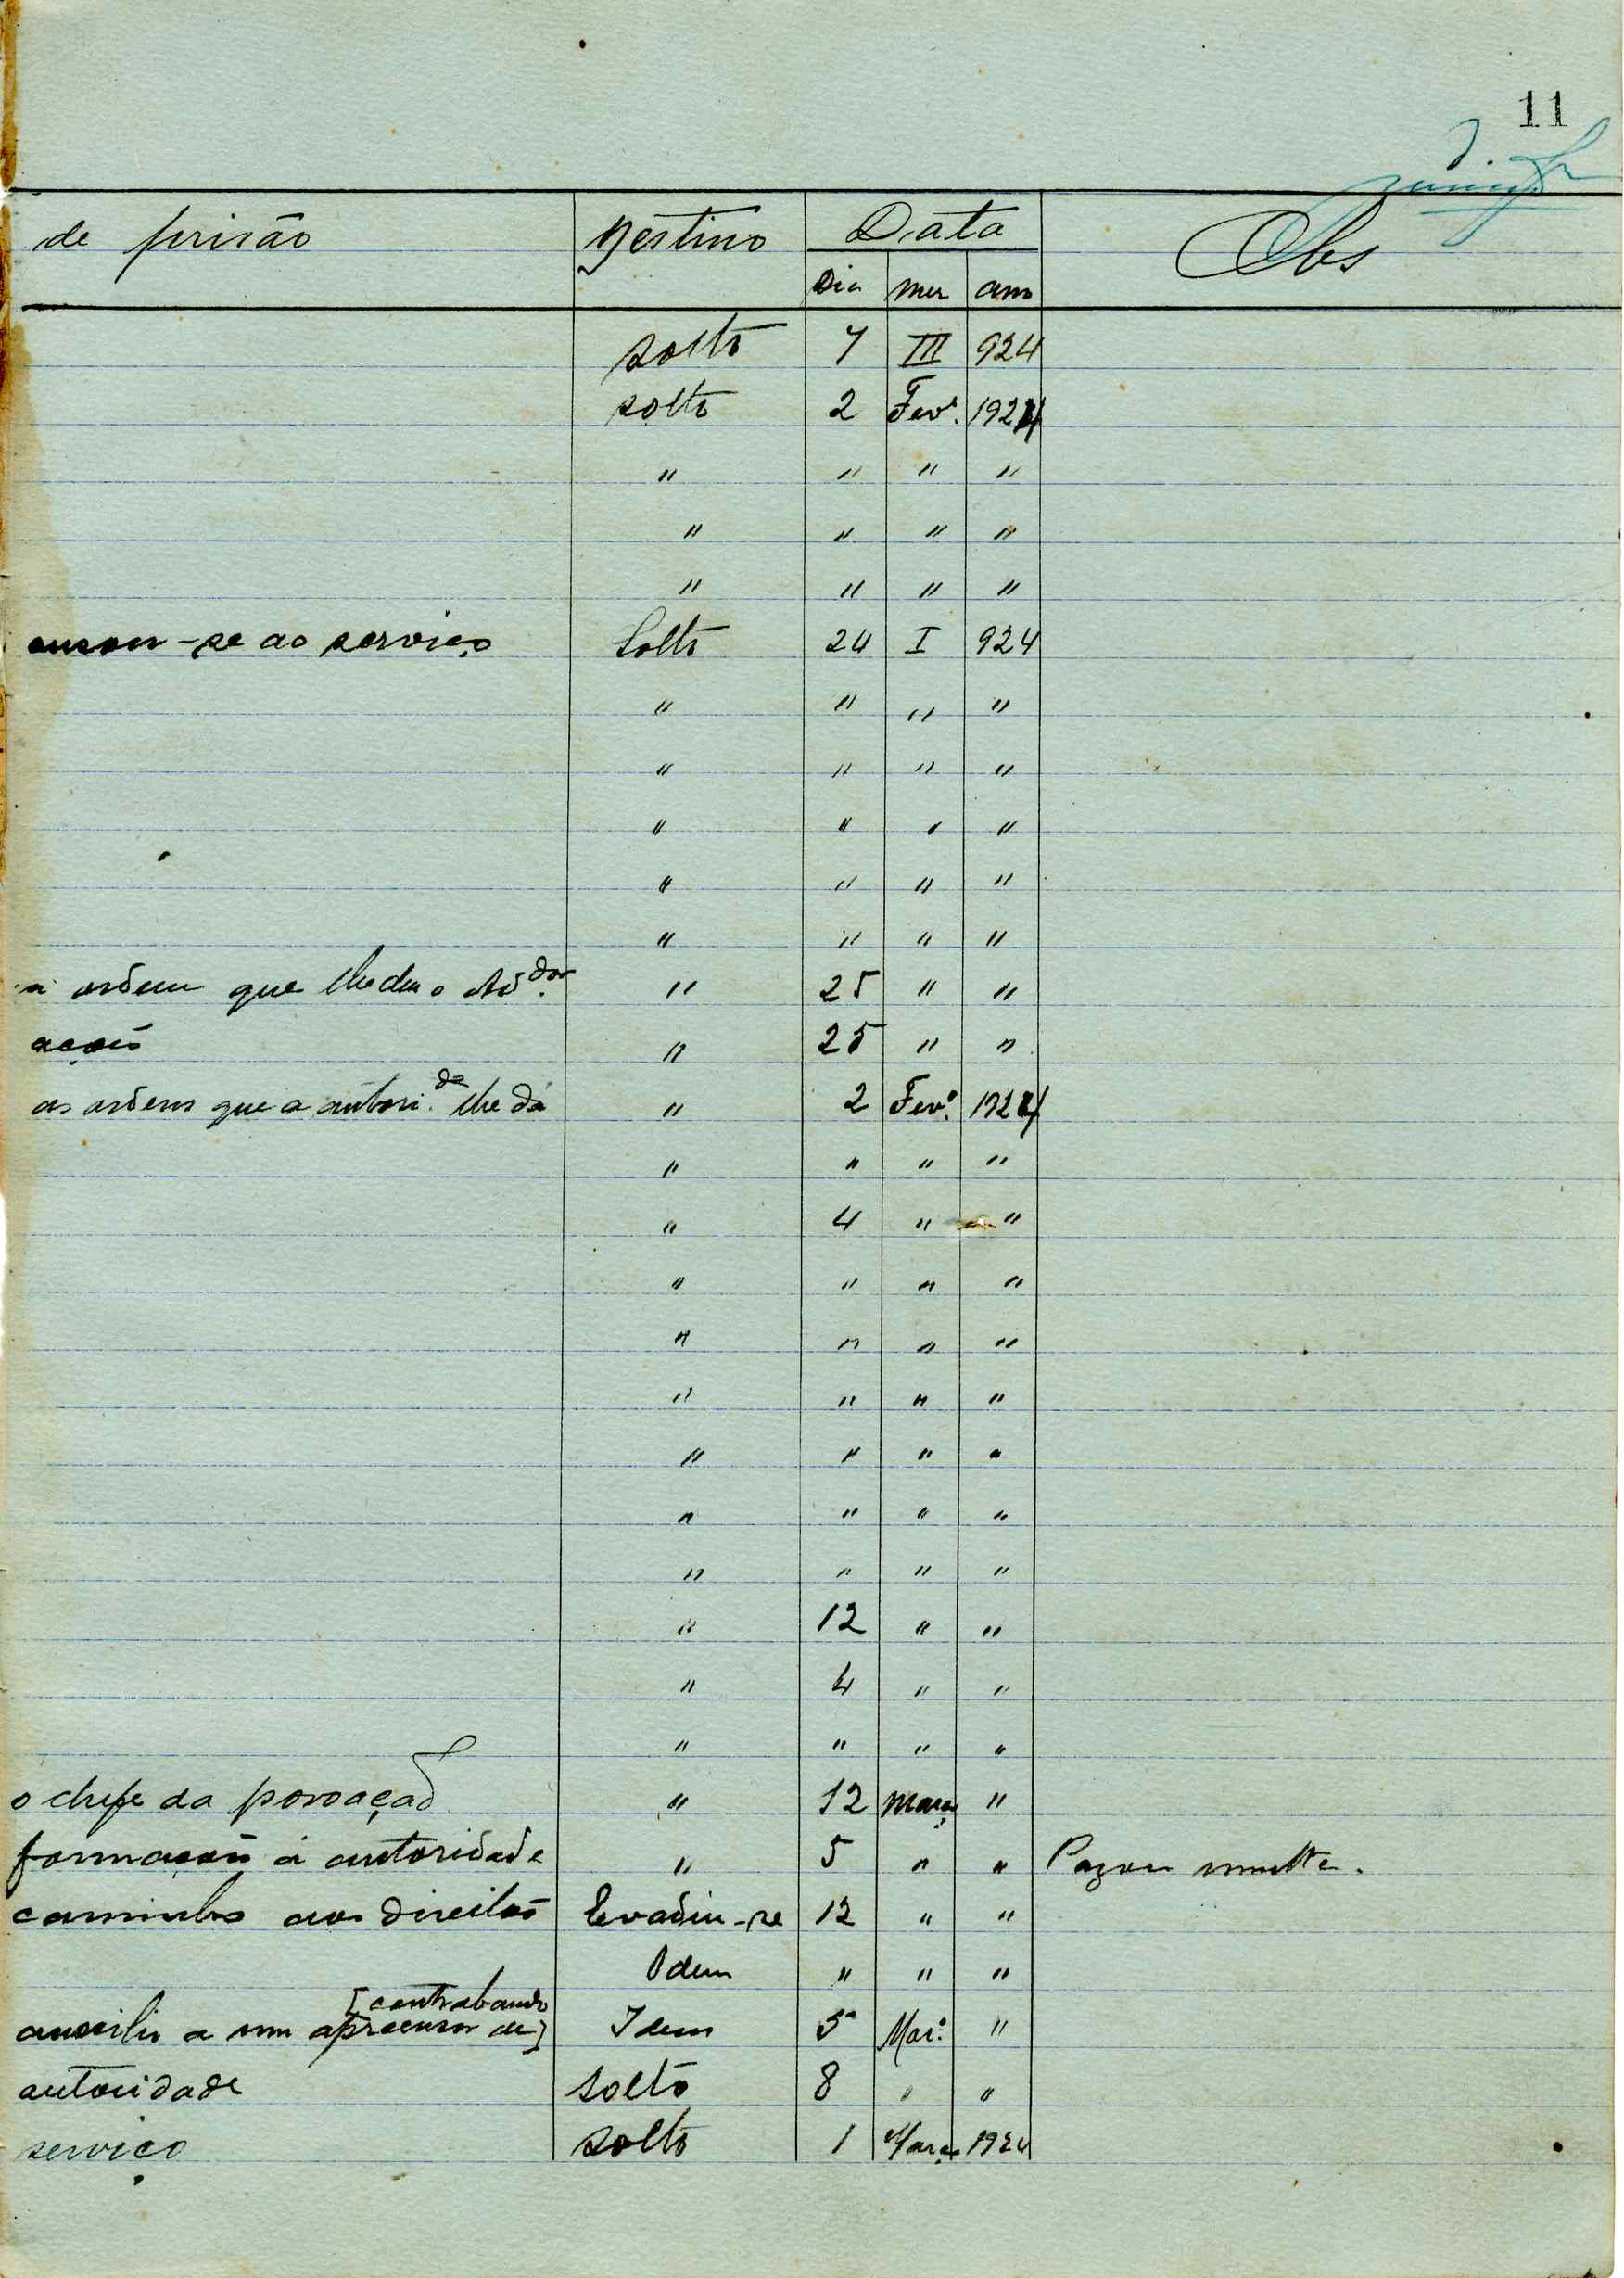 11
de prisão Destino Data Obs
Dia mez ano
solto 7 III 924
solto 2 Fev.º 1924
" " " "
" " " "
" " " "
cusou-se ao serviço Solto 24 I 924
" " " "
" " " "
" " " "
" " " "
" " " "
a ordem que lhe deu o Ad.dor " 25 " "
ações " 25 " "
as ordens que a autori.de lhe dá " 2 Fev.º 1924
" " " "
" 4 " "
" " " "
" " " "
" " " "
" " " "
" " " "
" " " "
" 12 " "
" 4 " "
" " " "
o chefe da povoação " 12 março "
formações á autoridade " 5 " " Pagou multa.
caminho aos direitos Evadiu-se 12 " "
Idem " " "
[contrabando
auxilio a um apreensor de] Idem 5 Mar.º "
autoridade solto 8 " "
serviço solto 1 Março 1924